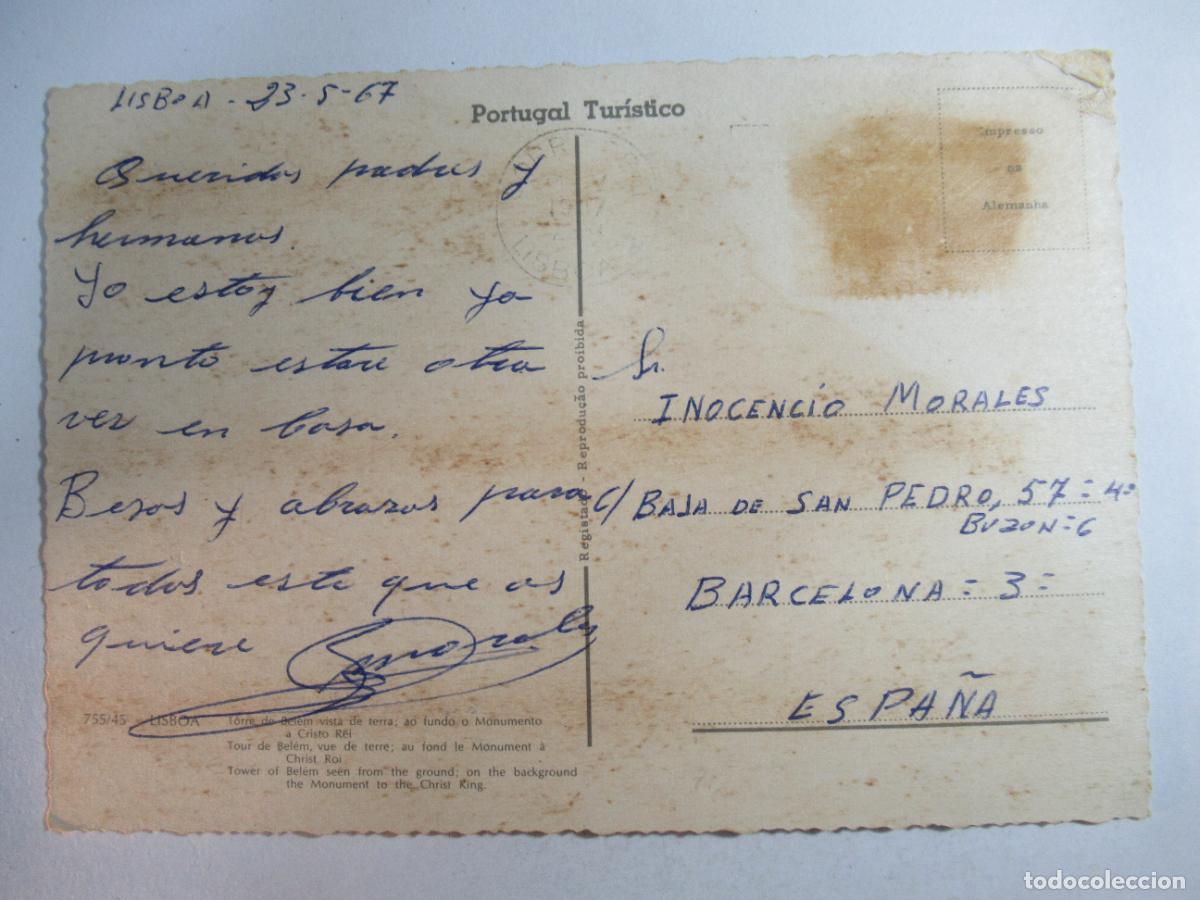 LISBOA - 23-5-67
Queridos padres y
hermanos.
Yo estoy bien ya
pronto estare otra
vez en casa.
Besos y abrazos para
todos este que os
quiere
Morales
Portugal Turístico
Impresso
na
Alemanha
LISBOA
Registado - Reprodução proibida
Sr.
INOCENCIO MORALES
C/ BAJA DE SAN PEDRO, 57=4º
BUZON=6
BARCELONA=3=
ESPAÑA
755/45 - LISBOA Tôrre de Belém vista de terra; ao fundo o Monumento
a Cristo Rei
Tour de Belém, vue de terre; au fond le Monument à
Christ Roi
Tower of Belém seen from the ground; on the background
the Monument to the Christ King.
todocoleccion